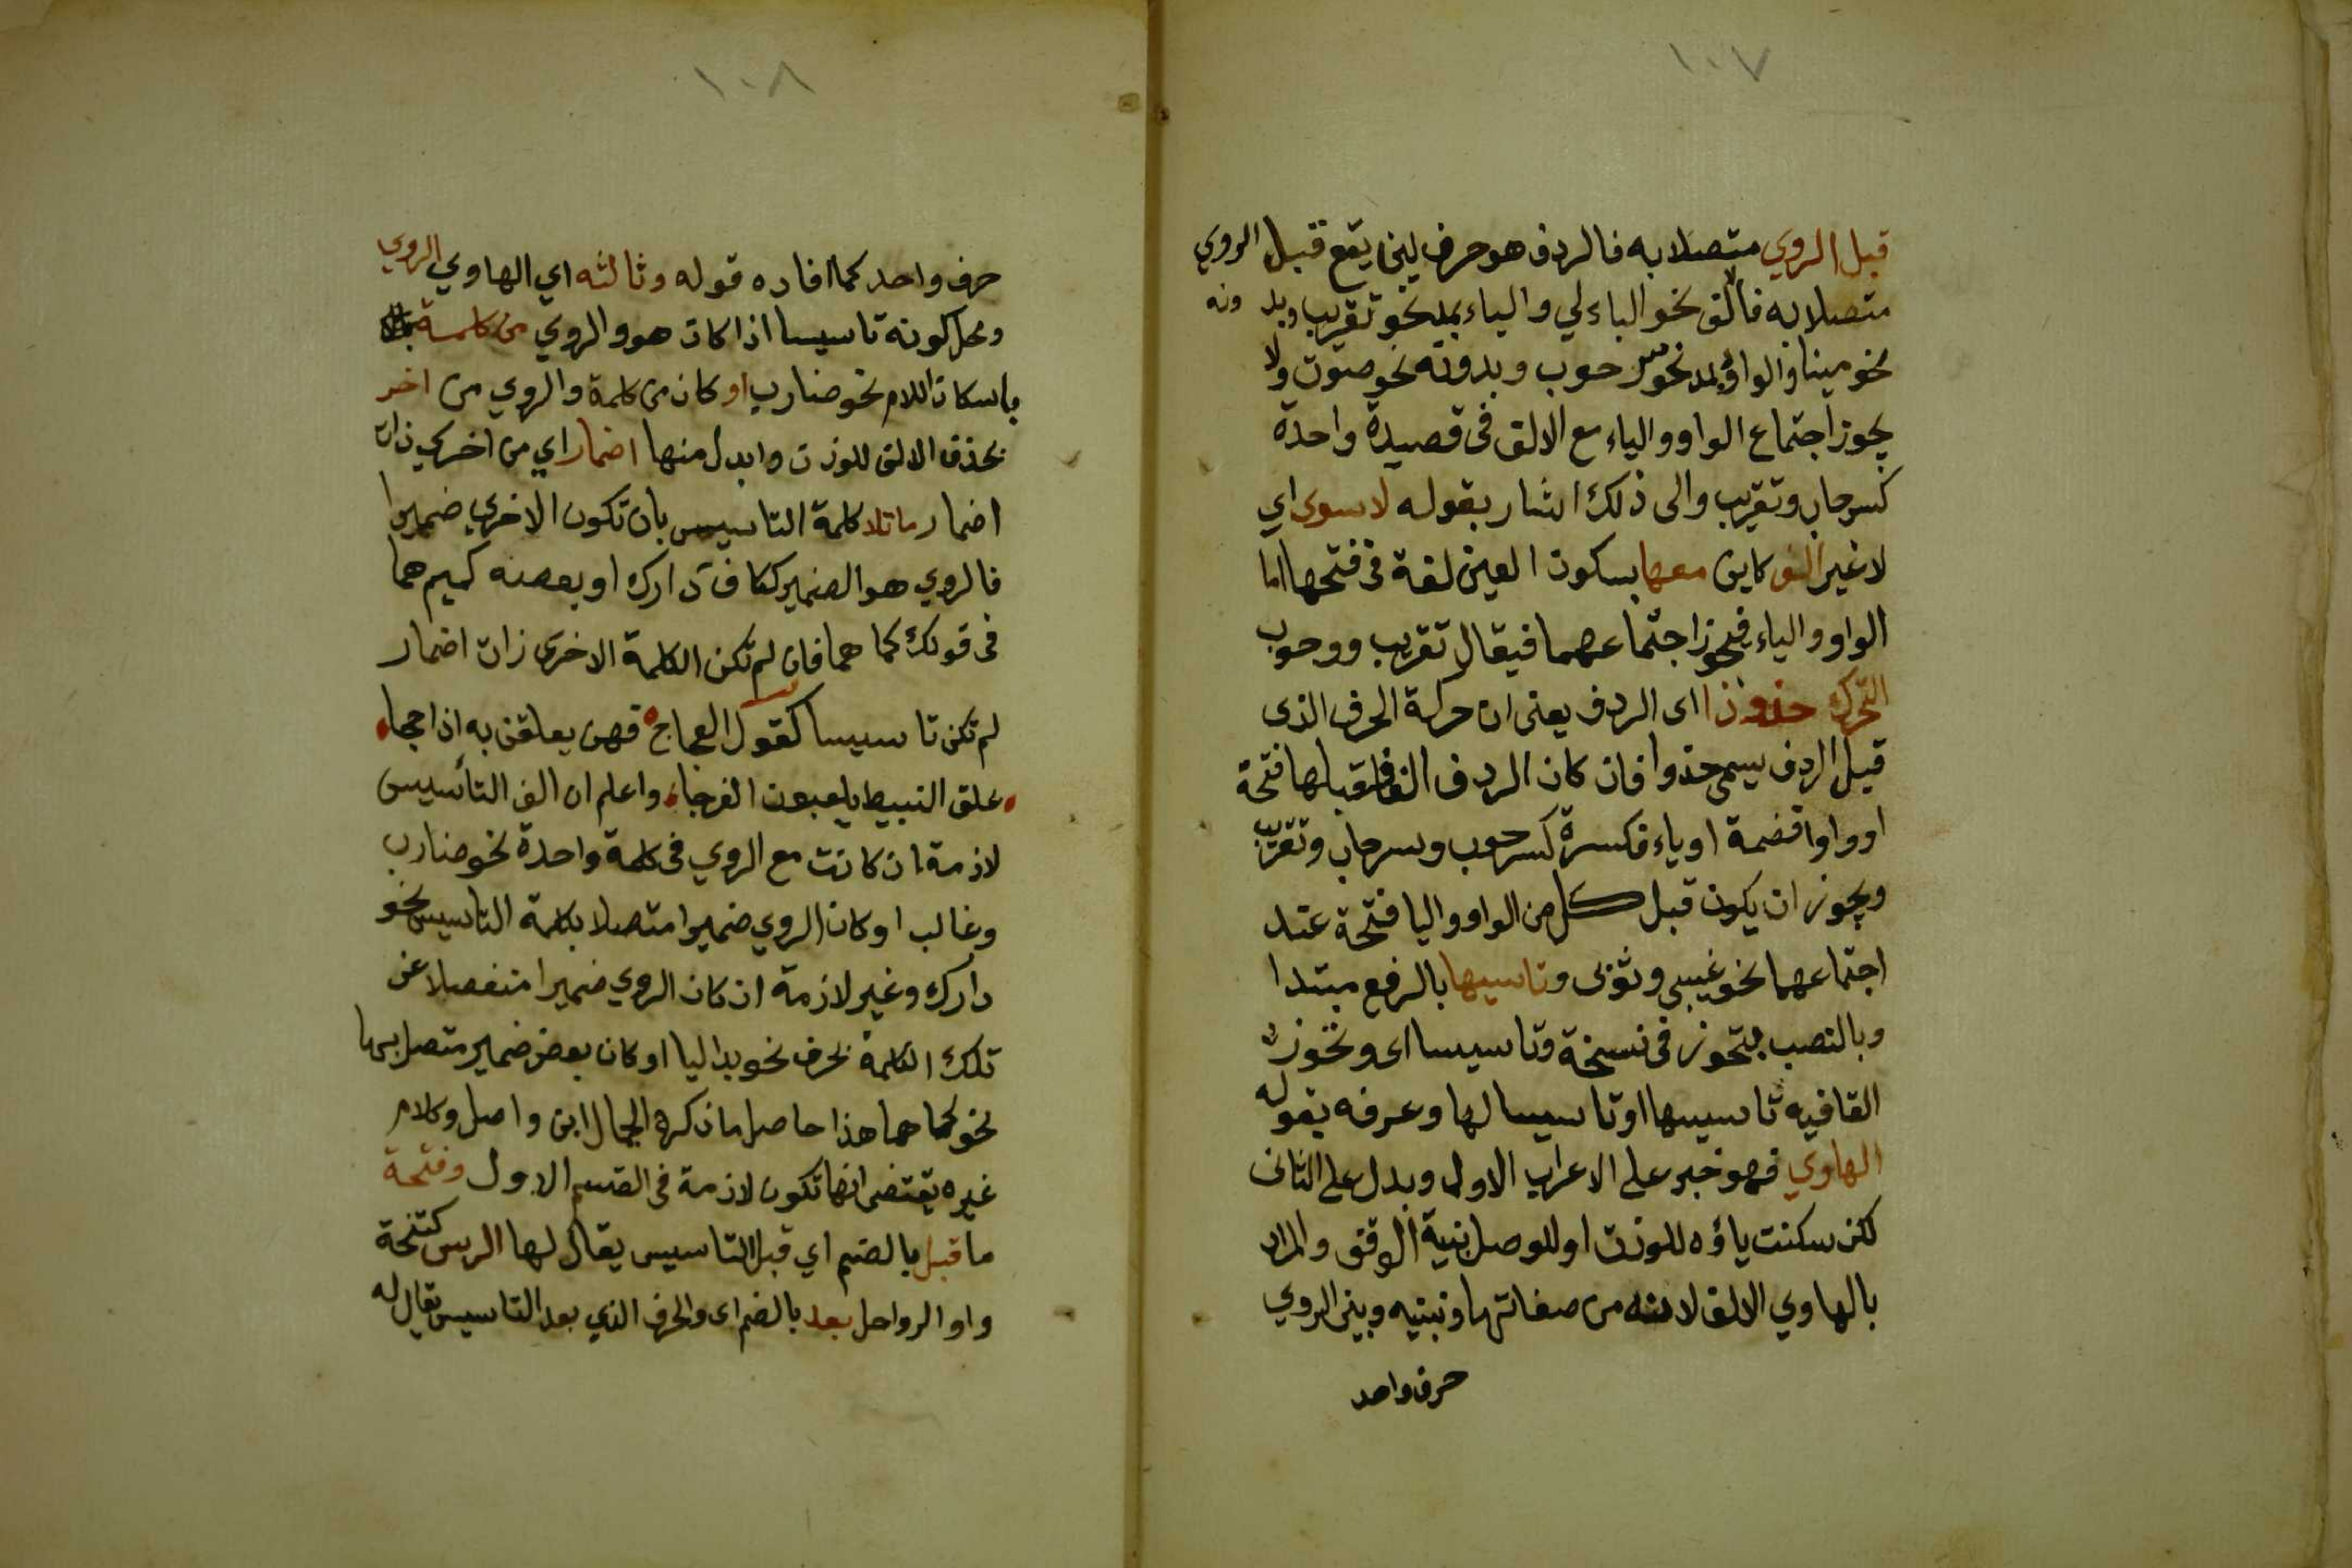 ١٠٧
قبل الروي متصلا به فالردف هو حرف لين يقع قبل الروي
متصلا به فالالف نحو الباء لي والياء بمد نحو تقريب وبدونه
نحو مينا والواو بمد نحو سرحوب وبدونه نحو صوت ولا
يجوز اجتماع الواو والياء مع الالف فى قصيدة واحدة
كسرحاب وتقريب والى ذلك اشار بقوله لا سوى اي
لا غير الف كاين معها بسكون العين لغة فى فتحها اما
الواو والياء فيجوز اجتماعهما فيقال تقريب ووحوب
التحرك حذو ذا اى الردف يعنى ان حركة الحرف الذى
قبل الردف يسمى حذوا فان كان الردف الفا فقبلها فتحة
او واوا فضمة او ياء فكسرة كسرحوب وسرحاب وتقريب
ويجوز ان يكون قبل كل من الواو واليا فتحة عند
اجتماعهما نحو غيبي وثوبى وتاسيسها بالرفع مبتدا
وبالنصب بتحوز فى نسخة وتاسيسا اى وتحوز
القافيه تاسيسها او تاسيسا لها وعرفه بقوله
الهاوي فهو خبر على الاعراب الاول وبدل على الثانى
لكن سكنت ياؤه للوزن او للوصل بنية الوقف والمراد
بالهاوي الالف لانه من صفاتها وبينه وبين الروي
حرف واحد
١٠٨
حرف واحد كما افاده قوله وثالثه اي الهاوي الروي
ومحل كونه تاسيسا اذا كان هو والروي من كلمة
باسكان اللام نحو ضارب او كان من كلمة والروي من اخر
بحذف الالف للوزن وابدل منها اضمار اي من اخرى ذات
اضمار ما تلا كلمة التاسيس بان تكون الاخري ضميرا
فالروي هو الضمير ككاف دارك او بعضه كميم هما
فى قولك كما هما فان لم تكن الكلمة الاخرى ذات اضمار
لم تكن تاسيسا كقول العجاج فهن يعلقن به اذا حجا
علق النبيط يلعبون الفرجا واعلم ان الف التاسيس
لازمة ان كانت مع الروي فى كلمة واحدة نحو ضارب
وغالب او كان الروي ضميرا متصلا بكلمة التاسيس نحو
دارك وغير لازمة ان كان الروي ضميرا منفصلا عن
تلك الكلمة بحرف نحو بدا ليا او كان بعض ضمير متصل بها
نحو كما هما هذا حاصل ما ذكره الجمال ابن واصل وكلام
غيره يقتضى انها تكون لازمة فى القسم الاول وفتحة
ما قبل بالضم اي قبل التاسيس يقال لها الرس كفتحة
واو الرواحل بعد بالضم اى والحرف الذي بعد التاسيس يقال له